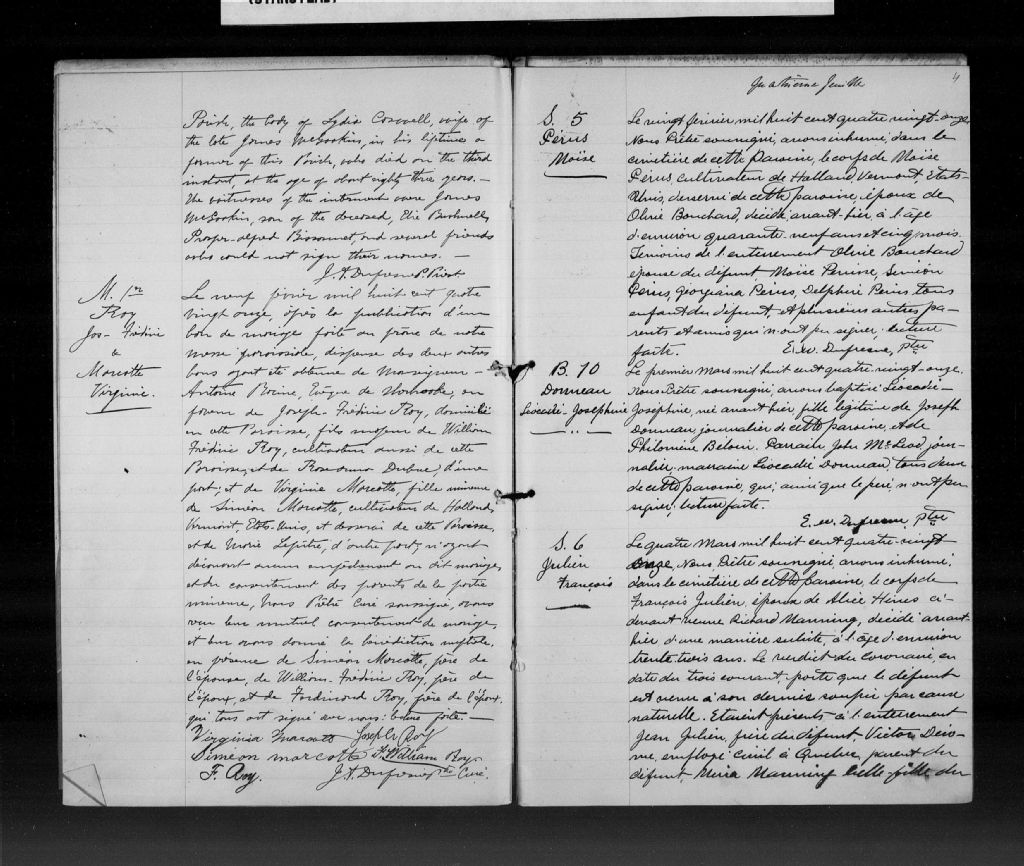 (STANSTEAD)
Parish, the body of Lydia Coswell, wife of
the late James McGookin, in his lifetime a
farmer of this Parish, who died on the third
instant, at the age of about eighty three years. —
The witnesses of the interment were James
McGookin, son of the deceased, Elie Bushnell,
Prosper-Alfred Bissonnet, and several friends
who could not sign their names. —
J. A. Dufresne Ptre Priest
M. 1er
Roy
Jos- Frédéric
&
Marcotte
Virginie.
Le neuf février mil huit cent quatre
vingt onze, après la publication d'un
ban de mariage faite au prône de notre
messe paroissiale, dispense des deux autres
bans ayant été obtenue de Monseigneur —
Antoine Racine, Evêque de Sherbrooke, en
faveur de Joseph-Frédéric Roy, domicilié
en cette Paroisse, fils majeur de William
Frédéric Roy, cultivateur aussi de cette
Paroisse, et de Roseanna Dubuc d'une
part; et de Virginie Marcotte, fille mineure
de Siméon Marcotte, cultivateur de Holland,
Vermont, Etats-Unis, et desservi de cette Paroisse,
et de Marie Lepître, d'autre part; n'ayant
découvert aucun empêchement au dit mariage,
et du consentement des parents de la partie
mineure, Nous Prêtre Curé soussigné, avons
reçu leur mutuel consentement de mariage,
et leur avons donné la bénédiction nuptiale,
en présence de Siméon Marcotte, père de
l'épouse, de William-Frédéric Roy, père de
l'époux, et de Ferdinand Roy, frère de l'époux,
qui tous ont signé avec nous: lecture faite. —
Virginia Marcotte Joseph Roy
Simeon marcotte F. William Roy
F. Roy. J. A. Dufresne Ptre Curé.
quatrième feuille
4
S. 5
Périus
Moïse
Le vingt février mil huit cent quatre vingt-onze,
Nous Prêtre soussigné, avons inhumé, dans le
cimetière de cette Paroisse, le corps de Moïse
Périus, cultivateur de Holland, Vermont, Etats-
Unis, desservi de cette paroisse, époux de
Olivie Bouchard, décédé, avant-hier, à l'âge
d'environ quarante neuf ans et cinq mois.
Témoins de l'enterrement Olivie Bouchard
épouse du défunt, Moïse Perisse, Siméon
Périus, Georgiana Périus, Delphine Périus tous
enfant du défunt, et plusieurs autres pa-
rents et amis qui n'ont pu signer, lecture
faite. E. W. Dufresne, ptre
B. 10
Donneau
Léocadie-Josephine
Le premier Mars mil huit cent quatre-vingt-onze,
Nous Prêtre soussigné, avons baptisé Léocadie-
Joséphine, née avant hier, fille légitime de Joseph
Donneau, journalier de cette paroisse, et de
Philomène Béloin. Parrain John McLeod, jour-
nalier, marraine Léocadie Donneau, tous deux
de cette paroisse, qui, ainsi que le père, n'ont pu
signer, lecture faite.
E. W. Dufresne, ptre
S. 6
Julien
François
Le quatre Mars mil huit cent quatre-vingt
onze, Nous Prêtre soussigné, avons inhumé,
dans le cimetière de cette paroisse, le corps de
François Julien, époux de Alice Hines ci-
devant veuve Richard Manning, décédé avant-
hier d'une manière subite, à l'âge d'environ
trente trois ans. Le verdict du Coronaire, en
date du trois courant, porte que le défunt
est venu à son dernier soupir par cause
naturelle. Etaient présents à l'enterrement
Jean Julien, frère du défunt Victor Denis-
me, employé civil à Québec, parent du
défunt, Maria Manning belle-fille du